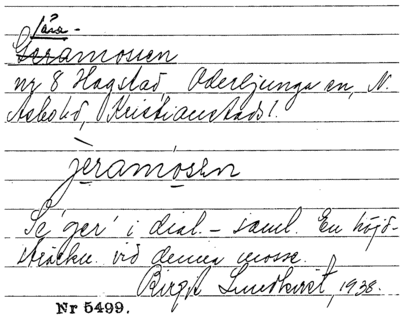 Jära-
Geramossen
nr 8 Hagstad Oderljunga sn, N.
Åsbohd, Kristianstads l.
jèramósen
Se 'ger' i dial.-saml. En höjd-
sträckn. vid denna mosse.
Birgit Lundkvist, 1938.
Nr 5499.